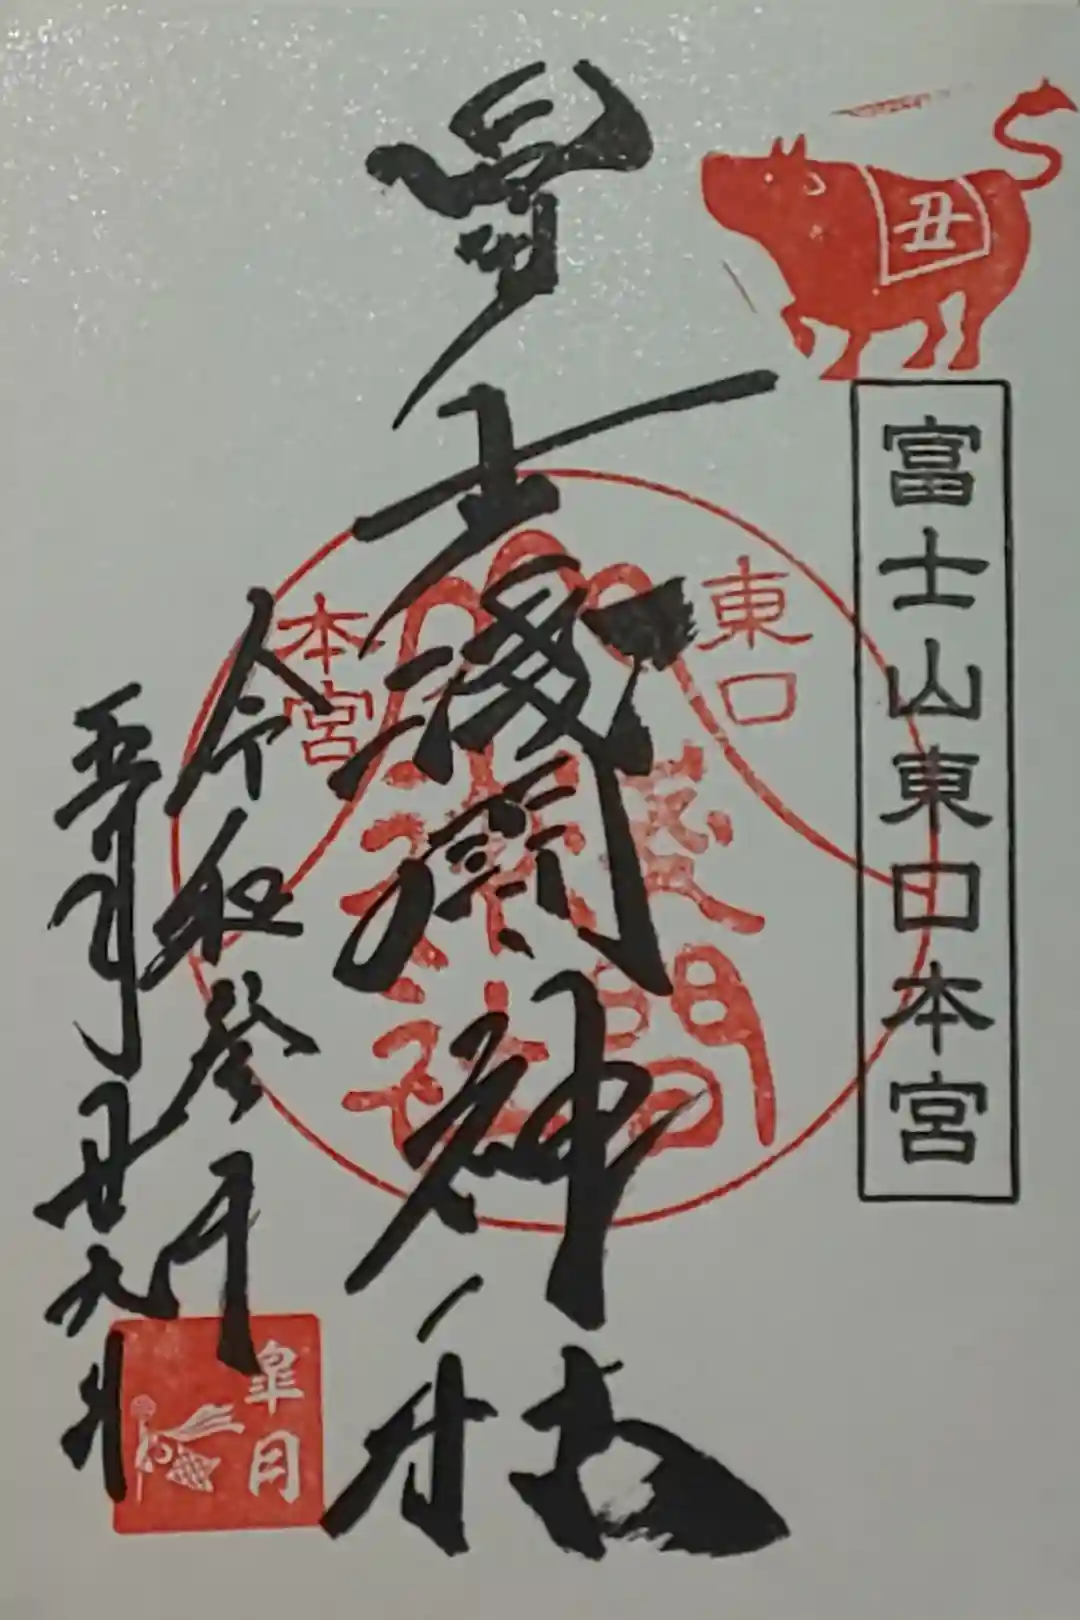 丑
富士山東口本宮
冨士浅間神社
東口
本宮
浅間
令和参年
五月廿九日
皐月